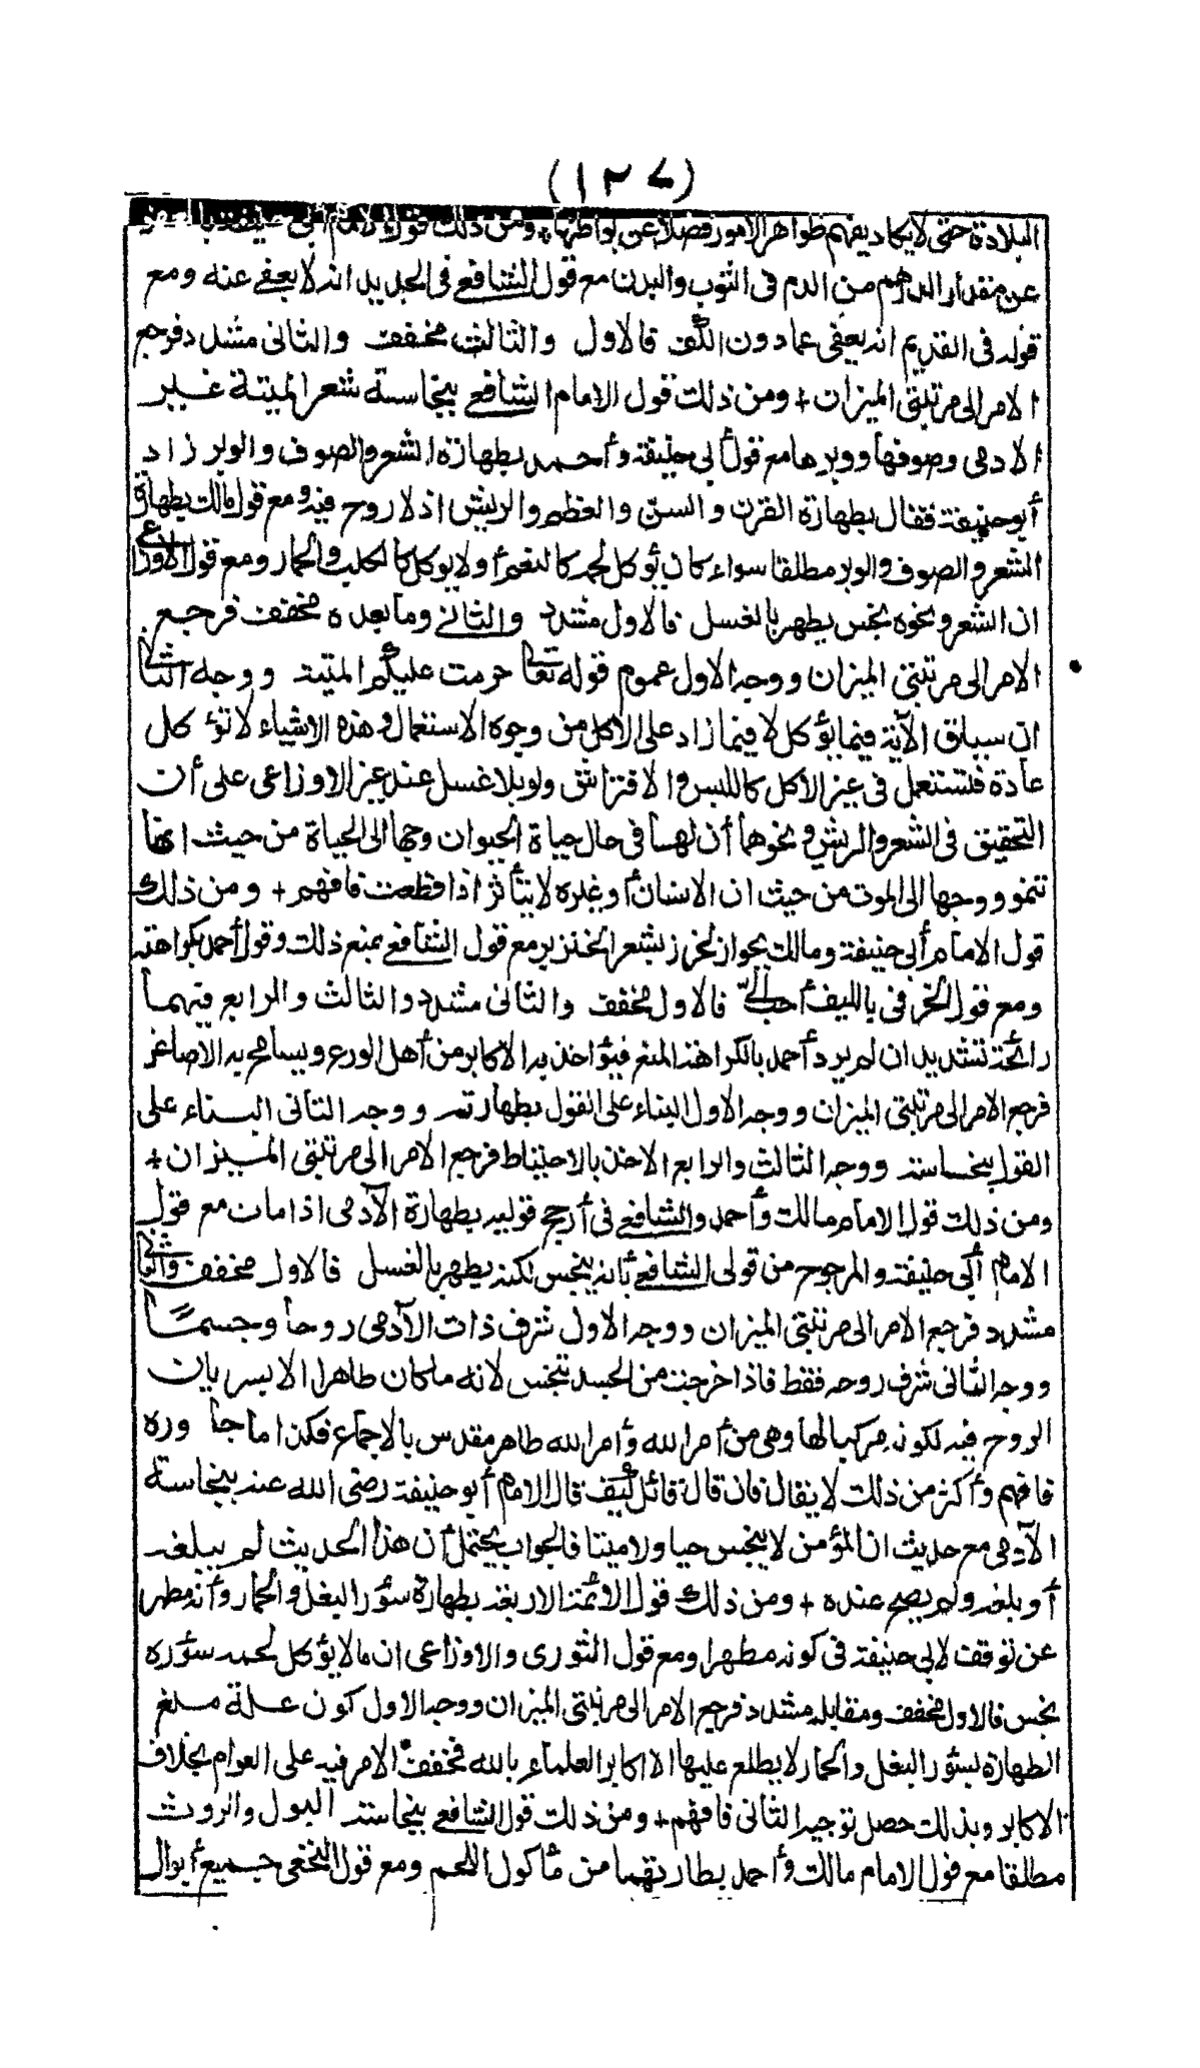 (١٢٧)
البلادة حتى لا يكاد يفهم ظواهر الامور فضلا عن بواطنها + ومن ذلك قول الامام أبي حنيفة بالعفو
عن مقدار الدرهم من الدم في الثوب والبدن مع قول الشافعي في الجديد انه لا يعفى عنه ومع
قوله في القديم انه يعفى عما دون الكف فالاول والثالث مخفف والثاني مشدد فرجع
الامر الى مرتبتي الميزان + ومن ذلك قول الامام الشافعي بنجاسة شعر الميتة غير
الادمى وصوفها ووبرها مع قول أبي حنيفة وأحمد بطهارة الشعر والصوف والوبر زاد
أبو حنيفة فقال بطهارة القرن والسن والعظم والريش اذ لا روح فيه ومع قول مالك بطهارة
الشعر والصوف والوبر مطلقا سواء كان يؤكل لحمه كالنعم أو لا يوكل كالكلب والحمار ومع قول الاوزاعى
ان الشعر ونحوه نجس يطهر بالغسل فالاول مشدد والثاني وما بعده مخفف فرجع
الامر الى مرتبتي الميزان ووجه الاول عموم قوله تعالى حرمت عليكم الميتة ووجه الثاني
ان سياق الآية فيما يؤكل لا فيما زاد على الاكل من وجوه الاستعمال وهذه الاشياء لا تؤكل
عادة فلتستعمل في غير الأكل كاللبس والافتراش ولو بلا غسل عند غير الاوزاعى على أن
التحقيق في الشعر والريش ونحوهما أن لهما في حال حياة الحيوان وجها الى الحياة من حيث انها
تنمو ووجها الى الموت من حيث ان الانسان أو غيره لا يتأثر اذا قطعت فافهم + ومن ذلك
قول الامام أبي حنيفة ومالك بجواز الخرز بشعر الخنزير مع قول الشافعي بمنع ذلك وقول أحمد بكراهته
ومع قوله الخرز في بالليف أحب الىّ فالاول مخفف والثاني مشدد والثالث والرابع فيهما
رائحة تشديد ان لم يرد أحمد بالكراهة المنع فيؤاخذ به الاكابر من أهل الورع ويسامح به الاصاغر
فرجع الامر الى مرتبتي الميزان ووجه الاول البناء على القول بطهارته ووجه الثاني البناء على
القول بنجاسته ووجه الثالث والرابع الاخذ بالاحتياط فرجع الامر الى مرتبتي الميزان +
ومن ذلك قول الامام مالك وأحمد والشافعي في أرجح قوليه بطهارة الآدمى اذا مات مع قول
الامام أبي حنيفة والمرجوح من قولى الشافعي بأنه ينجس لكنه يطهر بالغسل فالاول مخفف والثاني
مشدد فرجع الامر الى مرتبتي الميزان ووجه الاول شرف ذات الآدمى روحا وجسما
ووجه الثاني شرف روحه فقط فاذا خرجت من الجسد تنجس لانه ما كان طاهرا الا بسريان
الروح فيه لكونه مركبا لها وهى من أمر الله وأمر الله طاهر مقدس بالاجماع فكذا ما جاوره
فافهم وأكثر من ذلك لا يقال فان قال قائل كيف قال الامام أبو حنيفة رضى الله عنه بنجاسة
الآدمى مع حديث ان المؤمن لا ينجس حيا ولا ميتا فالجواب يحتمل أن هذا الحديث لم يبلغه
أو بلغه ولم يصح عنده + ومن ذلك قول الائمة الاربعة بطهارة سؤر البغل والحمار وأنه مطهر
عن توقف لابي حنيفة في كونه مطهرا ومع قول الثوري والاوزاعى ان ما لا يؤكل لحمه سؤره
نجس فالاول مخفف ومقابله مشدد فرجع الامر الى مرتبتي الميزان ووجه الاول كون علة مبلغ
الطهارة لسؤر البغل والحمار لا يطلع عليها الا اكابر العلماء بالله فخفف الامر فيه على العوام بخلاف
الاكابر وبذلك حصل توجيه الثاني فافهم + ومن ذلك قول الشافعي بنجاسة البول والروث
مطلقا مع قول الامام مالك وأحمد بطهارتهما من مأكول اللحم ومع قول النخعى جميع أبوال